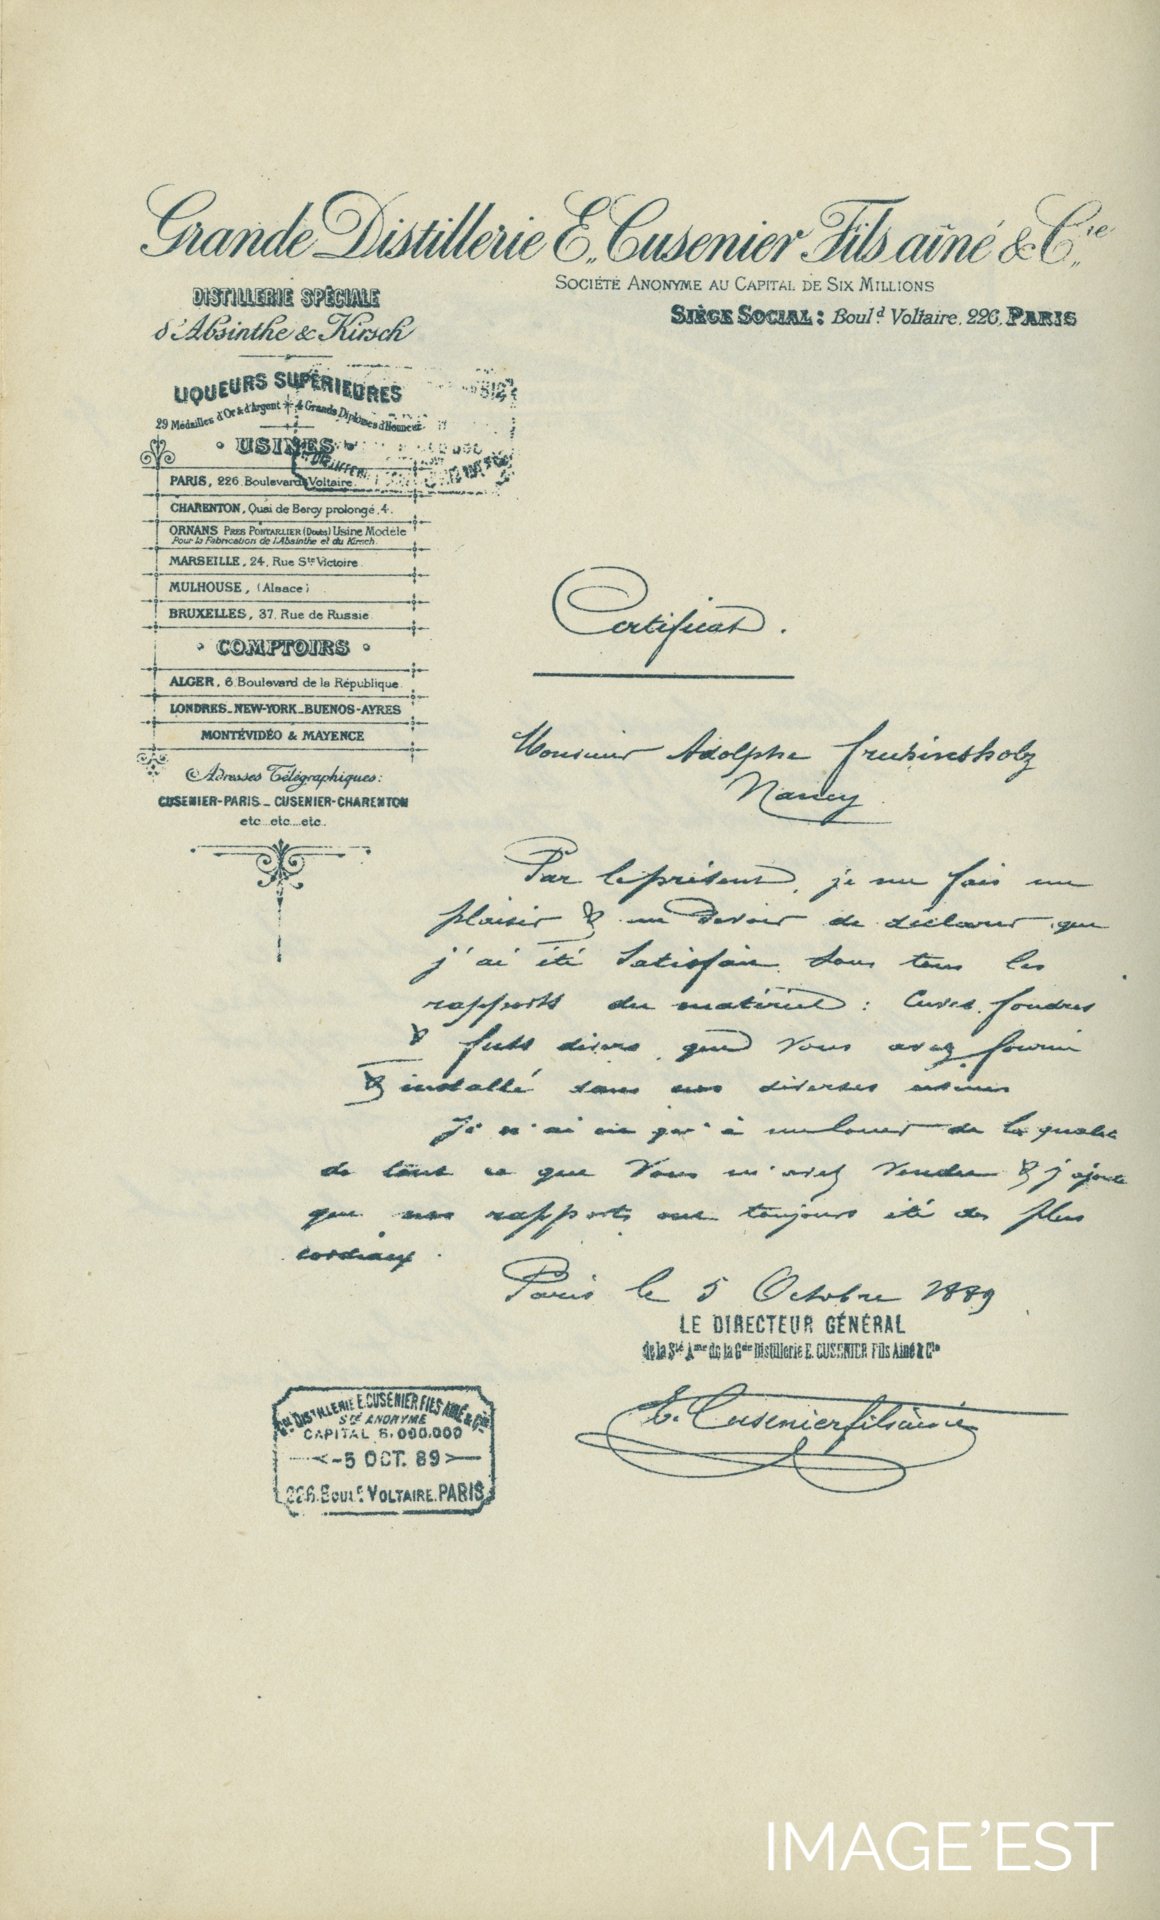 Grande Distillerie E. Cusenier Fils aîné & Cie
SOCIÉTÉ ANONYME AU CAPITAL DE SIX MILLIONS
SIÈGE SOCIAL: Bould. Voltaire. 226. PARIS
DISTILLERIE SPÉCIALE
d'Absinthe & Kirsch
LIQUEURS SUPÉRIEURES
29 Médailles d'Or & d'Argent 4 Grands Diplômes d'Honneur
USINES
PARIS, 226 Boulevard Voltaire
CHARENTON, Quai de Bercy prolongé, 4.
ORNANS PRÈS PONTARLIER (Doubs) Usine Modèle
Pour la Fabrication de l'Absinthe et du Kirsch.
MARSEILLE, 24, Rue Ste Victoire
MULHOUSE, (Alsace)
BRUXELLES, 37. Rue de Russie
COMPTOIRS
ALGER, 6 Boulevard de la République
LONDRES_NEW-YORK_BUENOS-AYRES
MONTÉVIDÉO & MAYENCE
Adresses Télégraphiques:
CUSENIER-PARIS_CUSENIER-CHARENTON
etc...etc...etc.
Certificat.
Monsieur Adolphe Fruhinsholz
Nancy
Par le présent, je me fais un
plaisir & un Devoir de déclarer que
j'ai été Satisfait Sous tous les
rapports du matériel : Cuves, foudres
& futs divers que Vous avez fourni
& installé dans nos diverses usines
Je n'ai eu qu'à me louer de la qualité
de tout ce que Vous m'avez Vendu & j'ajoute
que nos rapports ont toujours été des plus
cordiaux.
Paris le 5 Octobre 1889
LE DIRECTEUR GÉNÉRAL
de la Sté Ame de la Gde Distillerie E. CUSENIER Fils Ainé & Cie
E. Cusenier fils ainé
Gde DISTILLERIE E. CUSENIER FILS AINÉ & Cie
STÉ ANONYME
CAPITAL 6.000.000
-5 OCT. 89
226. BOULd. VOLTAIRE. PARIS
IMAGE'EST